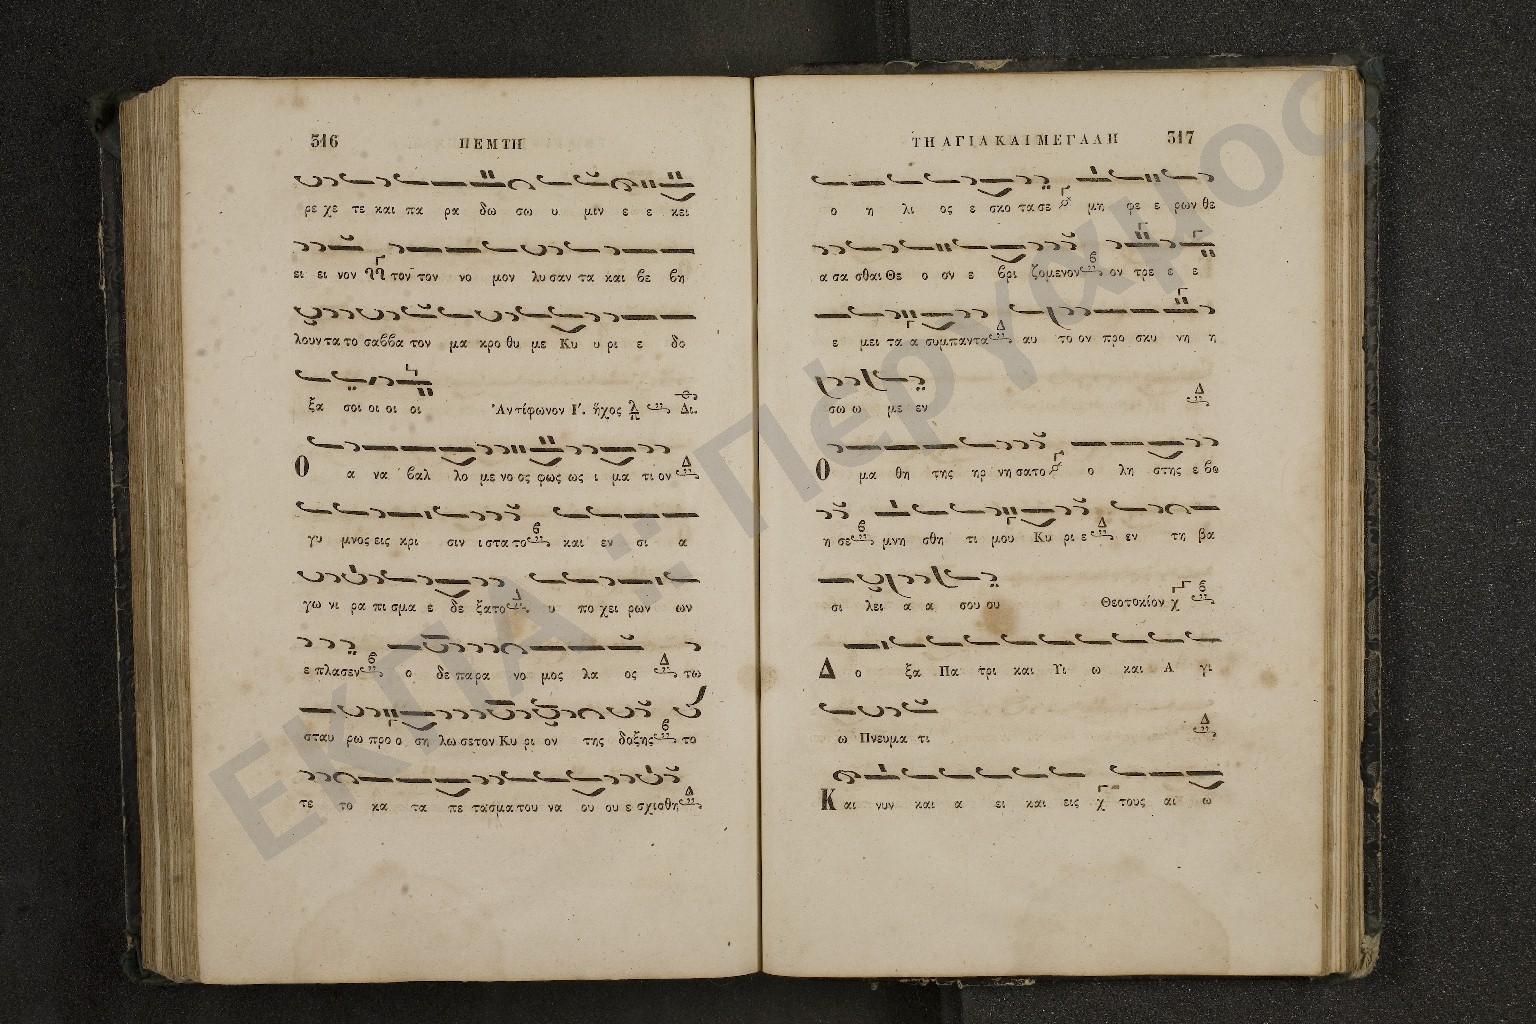 316 ΠΕΜΤΗ
ρε χε τε και πα ρα δω σω υ μιν ε ε κει
ει ει νον τον τον νο μον λυ σαν τα και βε βη
λουν τα το σαββα τον μα κρο θυ με Κυ υ ρι ε δο
ξα σοι οι οι οι Ἀντίφωνον Ι΄. ἦχος Δι.
Ο α να βαλ λο με νο ος φως ως ι μα τι ον
γυ μνος εις κρι σιν ι στα το και εν σι α
γω νι ρα πι σμα ε δε ξατο υ πο χει ρων ων
ε πλασεν ο δε παρα νο μος λα ος τω
σταυ ρω προ ο ση λω σετον Κυ ρι ον της δοξης το
τε το κα τα πε τασμα του να ου ου ε σχισθη
ΤΗ ΑΓΙΑ ΚΑΙ ΜΕΓΑΛΗ 317
ο η λι ος ε σκο τασε μη φε ε ρων θε
α σα σθαι Θε ο ον ε βρι ζομενον ον τρε ε ε
ε μει τα α συμπαντα αυ το ον προ σκυ νη η
σω ω με εν
Ο μα θη της ηρ νη σατο ο λη στης ε βο
η σε μνη σθη τι μου Κυ ρι ε εν τη βα
σι λει α α σου ου Θεοτοκίον
Δ ο ξα Πα τρι και Υι ω και Α γι
ω Πνευμα τι
Κ αι νυν και α ει και εις τους αι ω
ΕΚΠΑ :: Πέργαμος